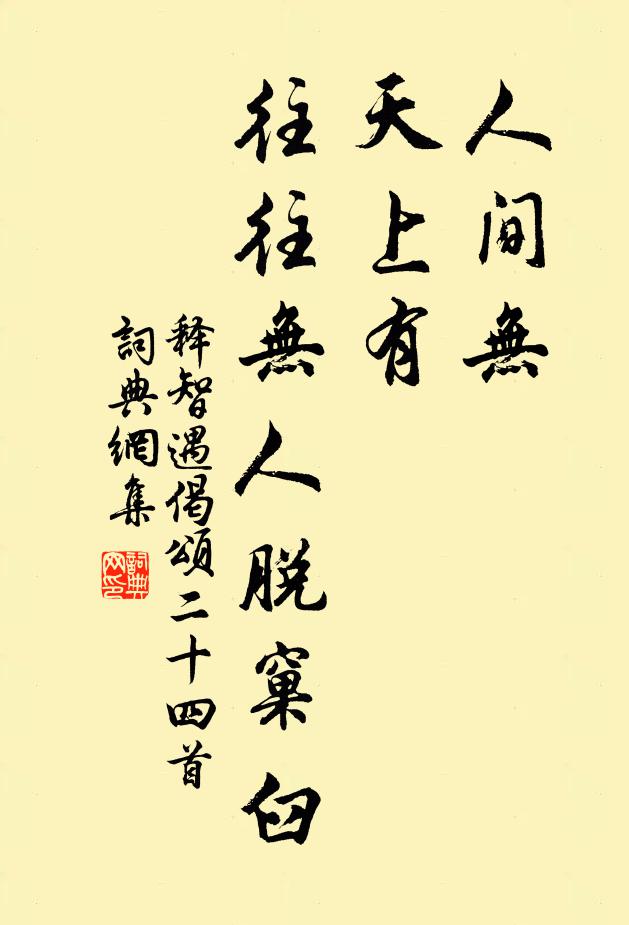 人間無
天上有
往往無人脱窠臼
释智遇偈頌二十四首
詞典網集
詞典
网印